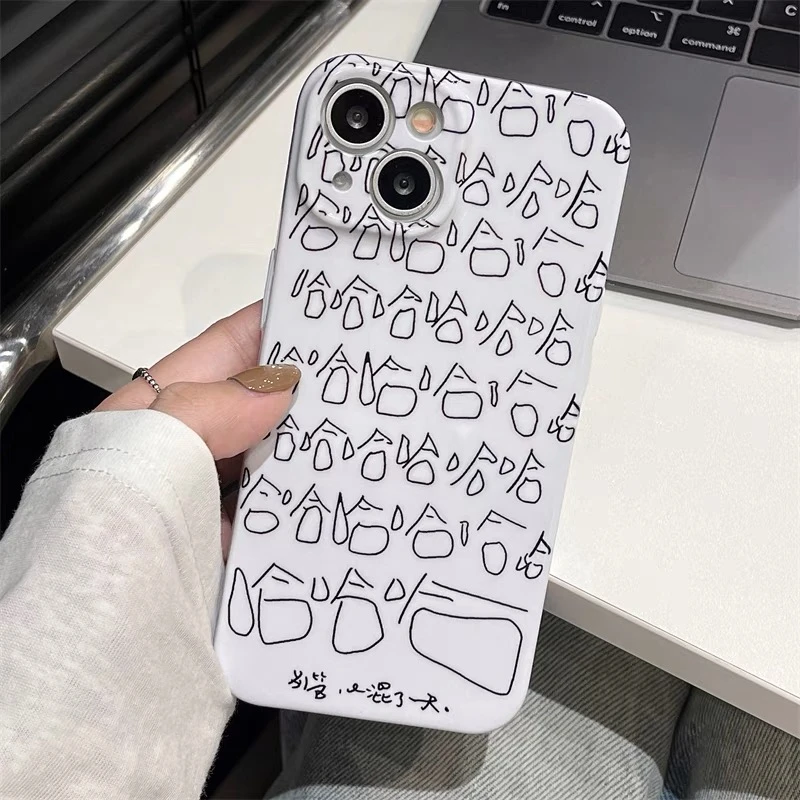 fn control option ⌥ command ⌘ C
哈哈哈哈哈哈
哈哈哈哈哈哈
哈哈哈哈哈哈
哈哈哈哈哈哈
哈哈哈哈哈哈
哈哈哈哈哈哈
哈哈哈哈哈哈
哈哈哈
别管，混了一天.